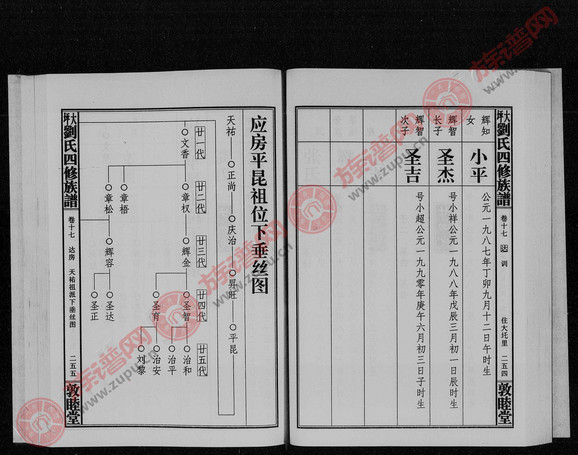 大坪劉氏四修族譜
卷十七
訓
住大圫里
二五四
敦睦堂
辉知
女
小平
公元一九八七年丁卯九月十二日午时生
辉智
长子
圣杰
号小祥公元一九八八年戊辰三月初一日辰时生
辉智
次子
圣吉
号小超公元一九九〇年庚午六月初三日子时生
应房平昆祖位下垂丝图
天祐
正尚
庆治
昇旺
平昆
廿一代
廿二代
廿三代
廿四代
廿五代
文香
章权
章梧
章松
辉金
辉容
圣智
圣育
圣达
圣正
治和
治平
治安
刘黎
大坪劉氏四修族譜
卷十七
达房
天祐祖派下垂丝图
二五五
敦睦堂
族谱网
www.zupu.cn
族谱网
www.zupu.cn
族谱网
www.zupu.cn